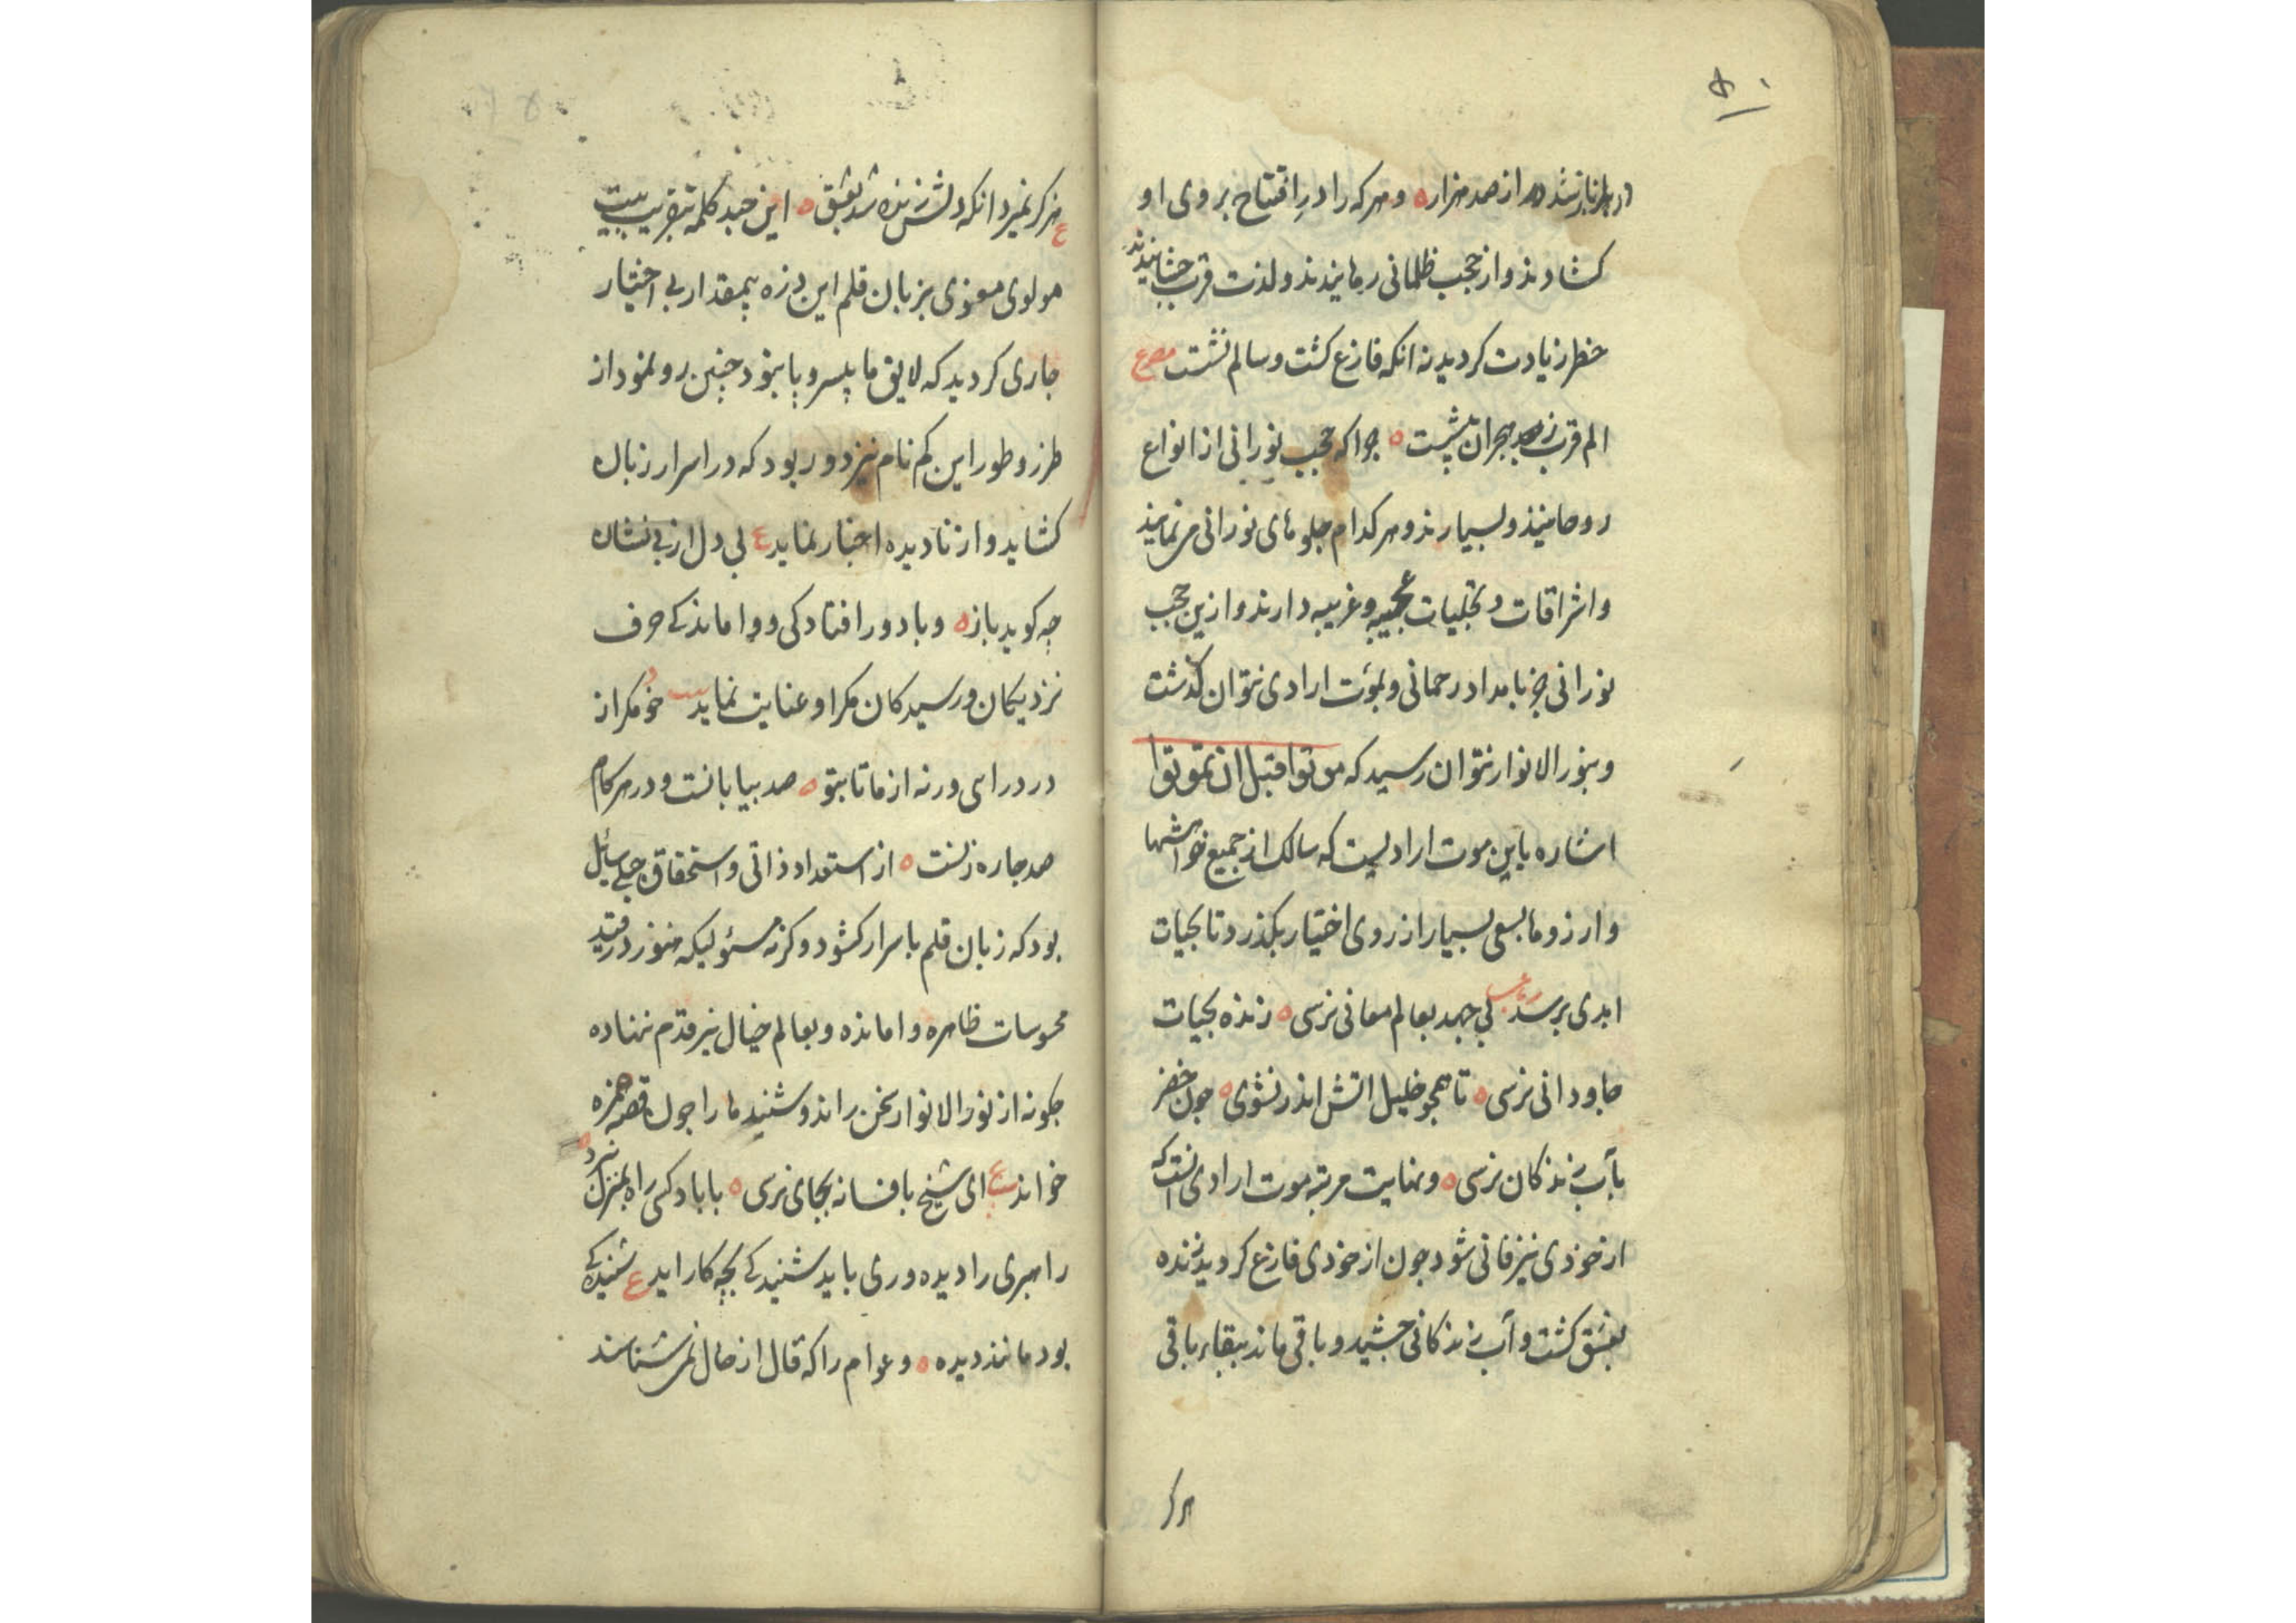 ۵۰
در باز نشد از صد هزار ه و هر که را در افتتاح بروی او
کشادند و از حجب ظلمانی رهانیدند و لذت قرب چشانیدند
خطر زیادت کردید نه انکه فارغ کشت و سالم نشست مصرع
الم قرب ز هجران بیشست ه چرا که حجب نورانی از انواع
روحانیند و بسیارند و هر کدام جلوهای نورانی می نمایند
و اشراقات و تجلیات عجیبه و غریبه دارند و ازین حجب
نورانی جز بامداد رحمانی و بموت ارادی نتوان کذشت
و بنور الانوار نتوان رسید که موتوا قبل ان تموتوا
اشاره باین موت ارادیست که سالک از جمیع خواهشها
و ارزوها بسعی بسیار از روی اختیار بکذرد تا بحیات
ابدی برسد رباعی بی جهد بعالم معانی نرسی ه زنده بحیات
جاودانی نرسی ه تا همچو خلیل اتش اندر نشوی ه چون خضر
بآب زندکانی نرسی ه و نهایت مرتبه موت ارادی انست که
از خودی نیز فانی شود چون از خودی فارغ کردید زنده
بعشق کشت و آب زندکانی چشید و باقی ماند ببقاء باقی
هرکز
ع هرکز نمیرد انکه دلش زنده شد بعشق ه این چند کلمه بتقریب بیت
مولوی معنوی بزبان قلم این ذره بیمقدار بی اختیار
جاری کردید که لایق ما بیسر و پا نبود چنین رو نمود از
طرز و طور این کم نام نیز دور بود که در اسرار زبان
کشاید و از نادیده اخبار نماید ع بی دل از بی نشان
چه کوید باز ه و با دور افتادکی و واماندکی حرف
نزدیکان و رسیدکان مکر او عنایت نماید بیت خود مکر از
در درای ورنه از ما تا بتو ه صد بیابانست و در هر کام
صد جاره زنست ه از استعداد ذاتی و استحقاق جبلی سائل
بود که زبان قلم باسرار کشود وکرنه مسئولیکه هنوز در قید
محسوسات ظاهره وامانده و بعالم خیال نیز قدم ننهاده
چکونه از نور الانوار سخن راند و شنیدها را چون قصه حمزه
خواند بیت ای شیخ بافسانه بجای نرسی ه بابا دکسی راه بمنزل نبرد ه
راهبری را دیده وری باید شنیدکی بچه کار اید ع شنیدکی
بود مانند دیده ه و عوام را که قال از حال نمی شناسند